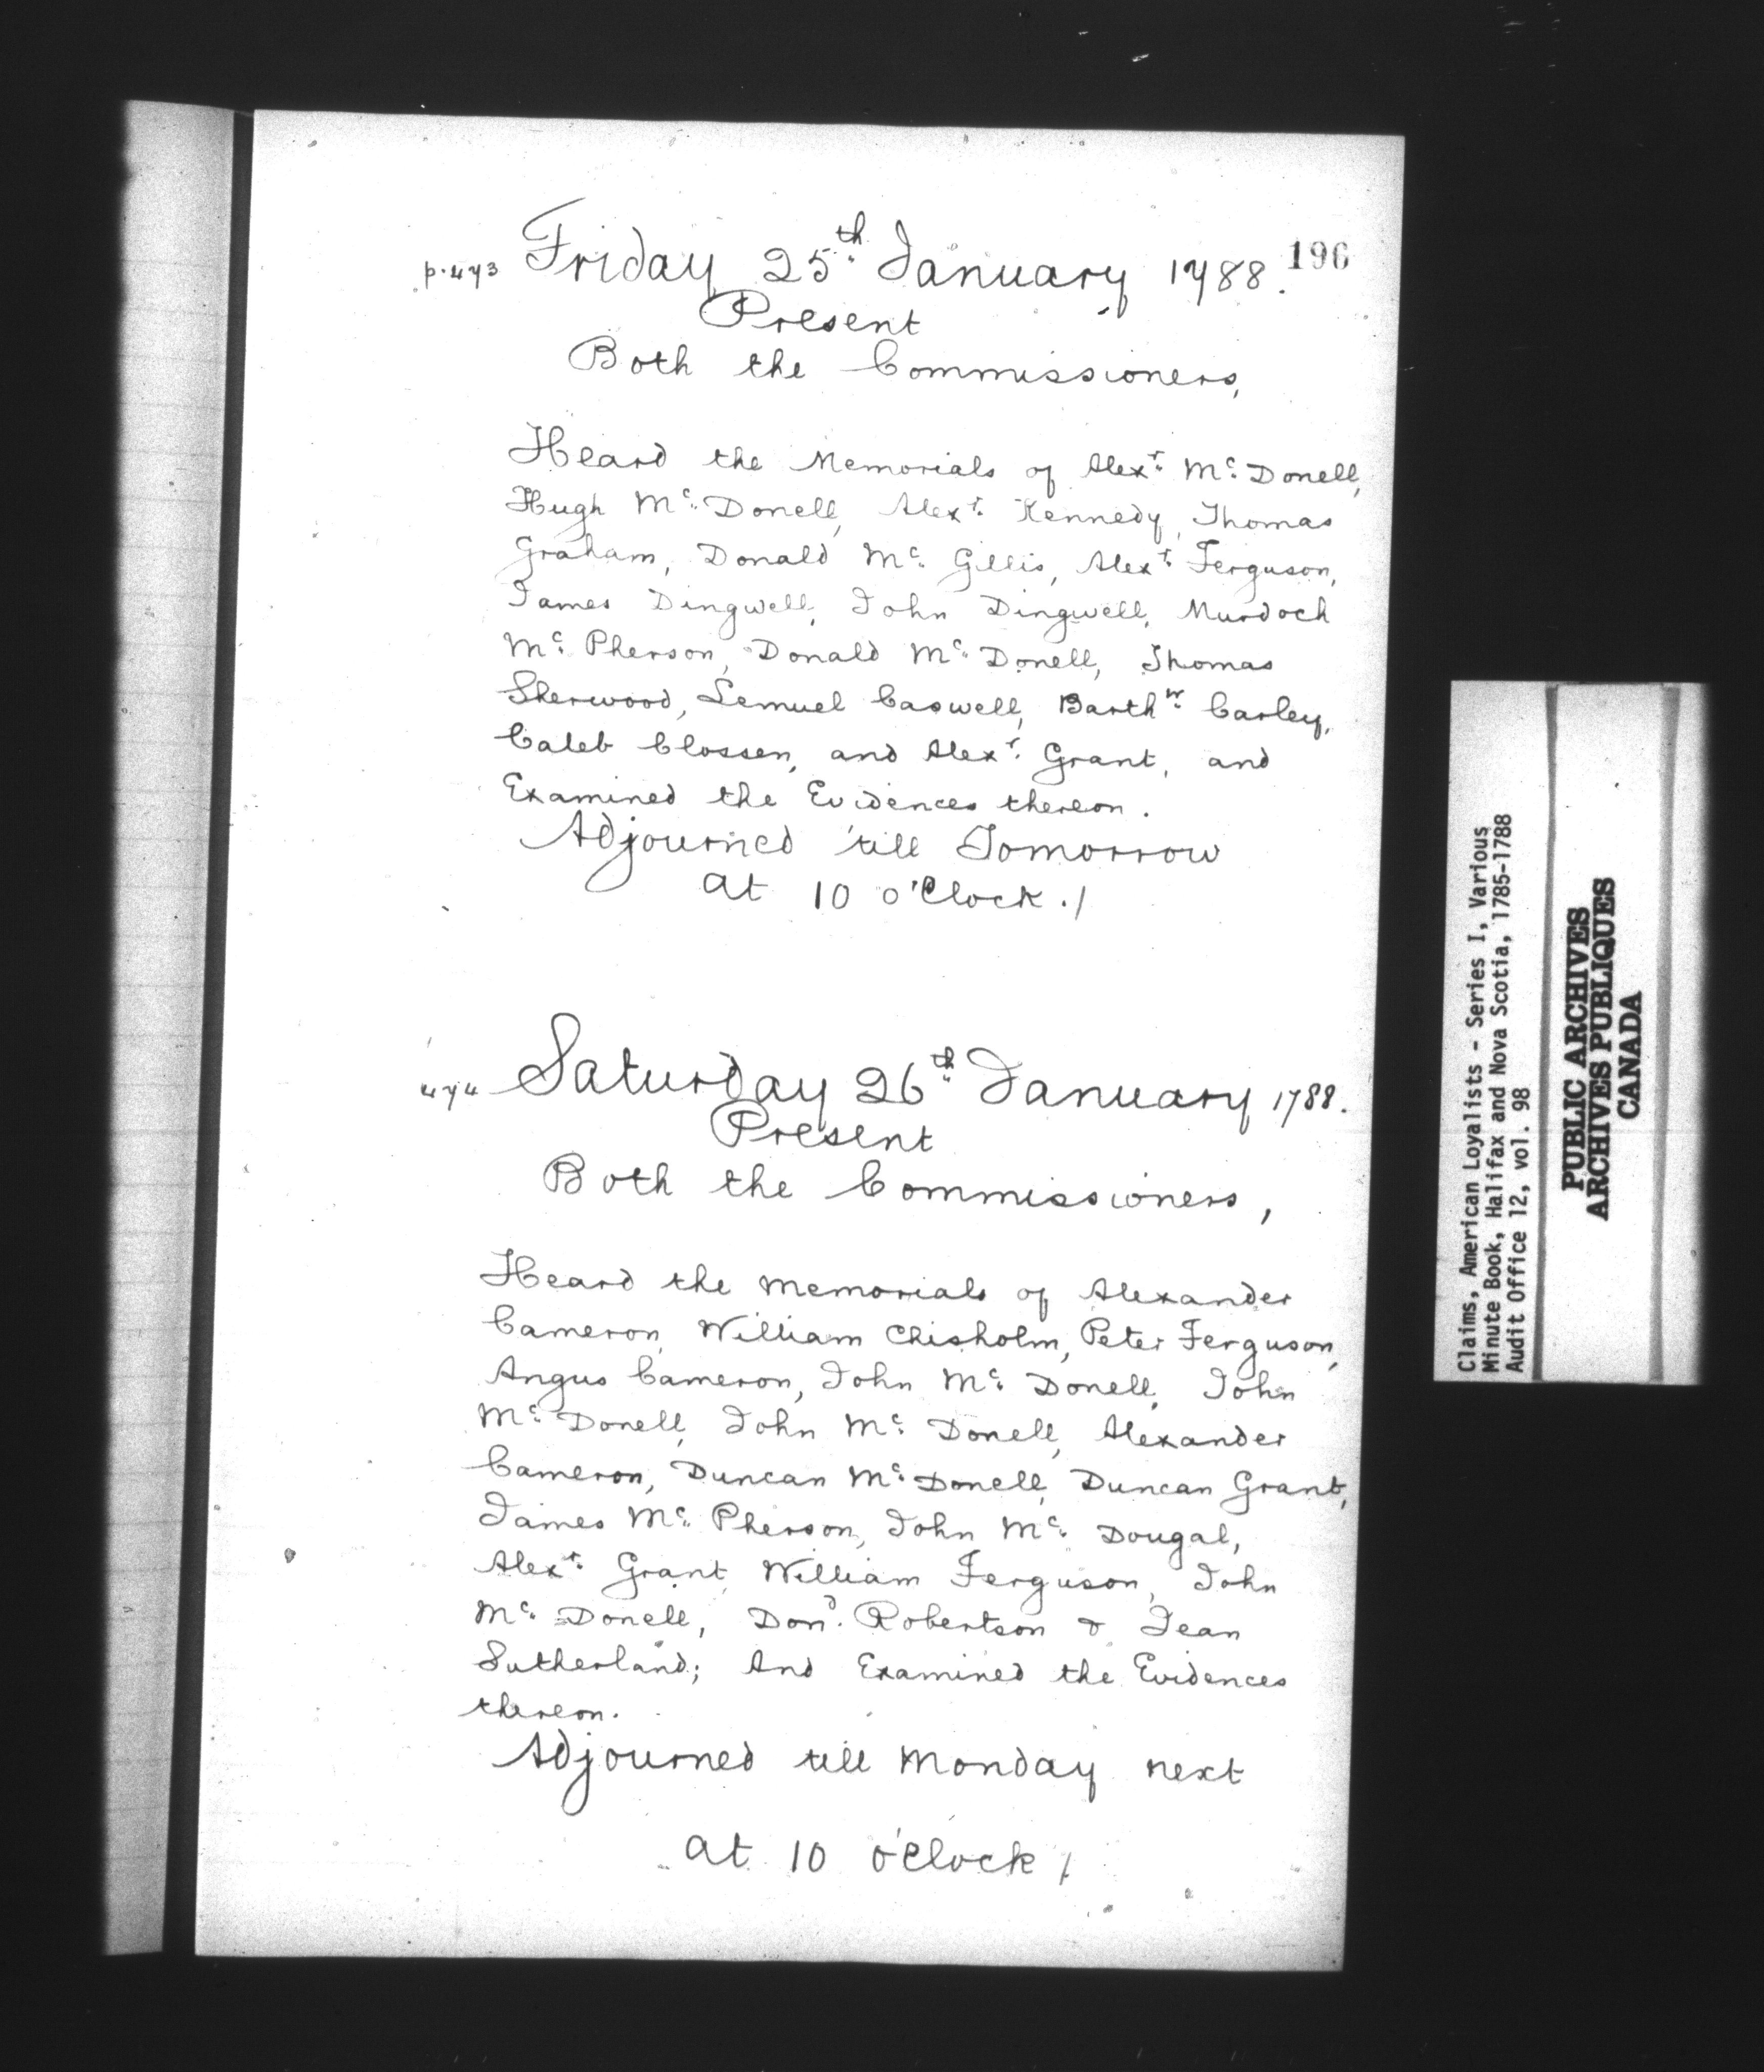 196
p. 473 Friday 25th January 1788.
Present
Both the Commissioners,
Heard the Memorials of Alexr. Mc. Donell,
Hugh Mc. Donell, Alexr. Kennedy, Thomas
Graham, Donald Mc. Gillis, Alexr. Ferguson,
James Dingwell, John Dingwell, Murdoch
Mc. Pherson, Donald Mc. Donell, Thomas
Sherwood, Lemuel Caswell, Barthw. Carley,
Caleb Clossen, and Alexr. Grant, and
Examined the Evidences thereon.
Adjourned 'till Tomorrow
at 10 o'Clock./
474 Saturday 26th January 1788.
Present
Both the Commissioners,
Heard the Memorials of Alexander
Cameron, William Chisholm, Peter Ferguson,
Angus Cameron, John Mc. Donell, John
Mc. Donell, John Mc. Donell, Alexander
Cameron, Duncan Mc. Donell, Duncan Grant,
James Mc. Pherson, John Mc. Dougal,
Alexr. Grant, William Ferguson, John
Mc. Donell, Dond. Robertson & Jean
Sutherland; And Examined the Evidences
thereon.
Adjourned till Monday next
at 10 o'Clock /
Claims, American Loyalists - Series I, Various
Minute Book, Halifax and Nova Scotia, 1785-1788
Audit Office 12, vol. 98
PUBLIC ARCHIVES
ARCHIVES PUBLIQUES
CANADA